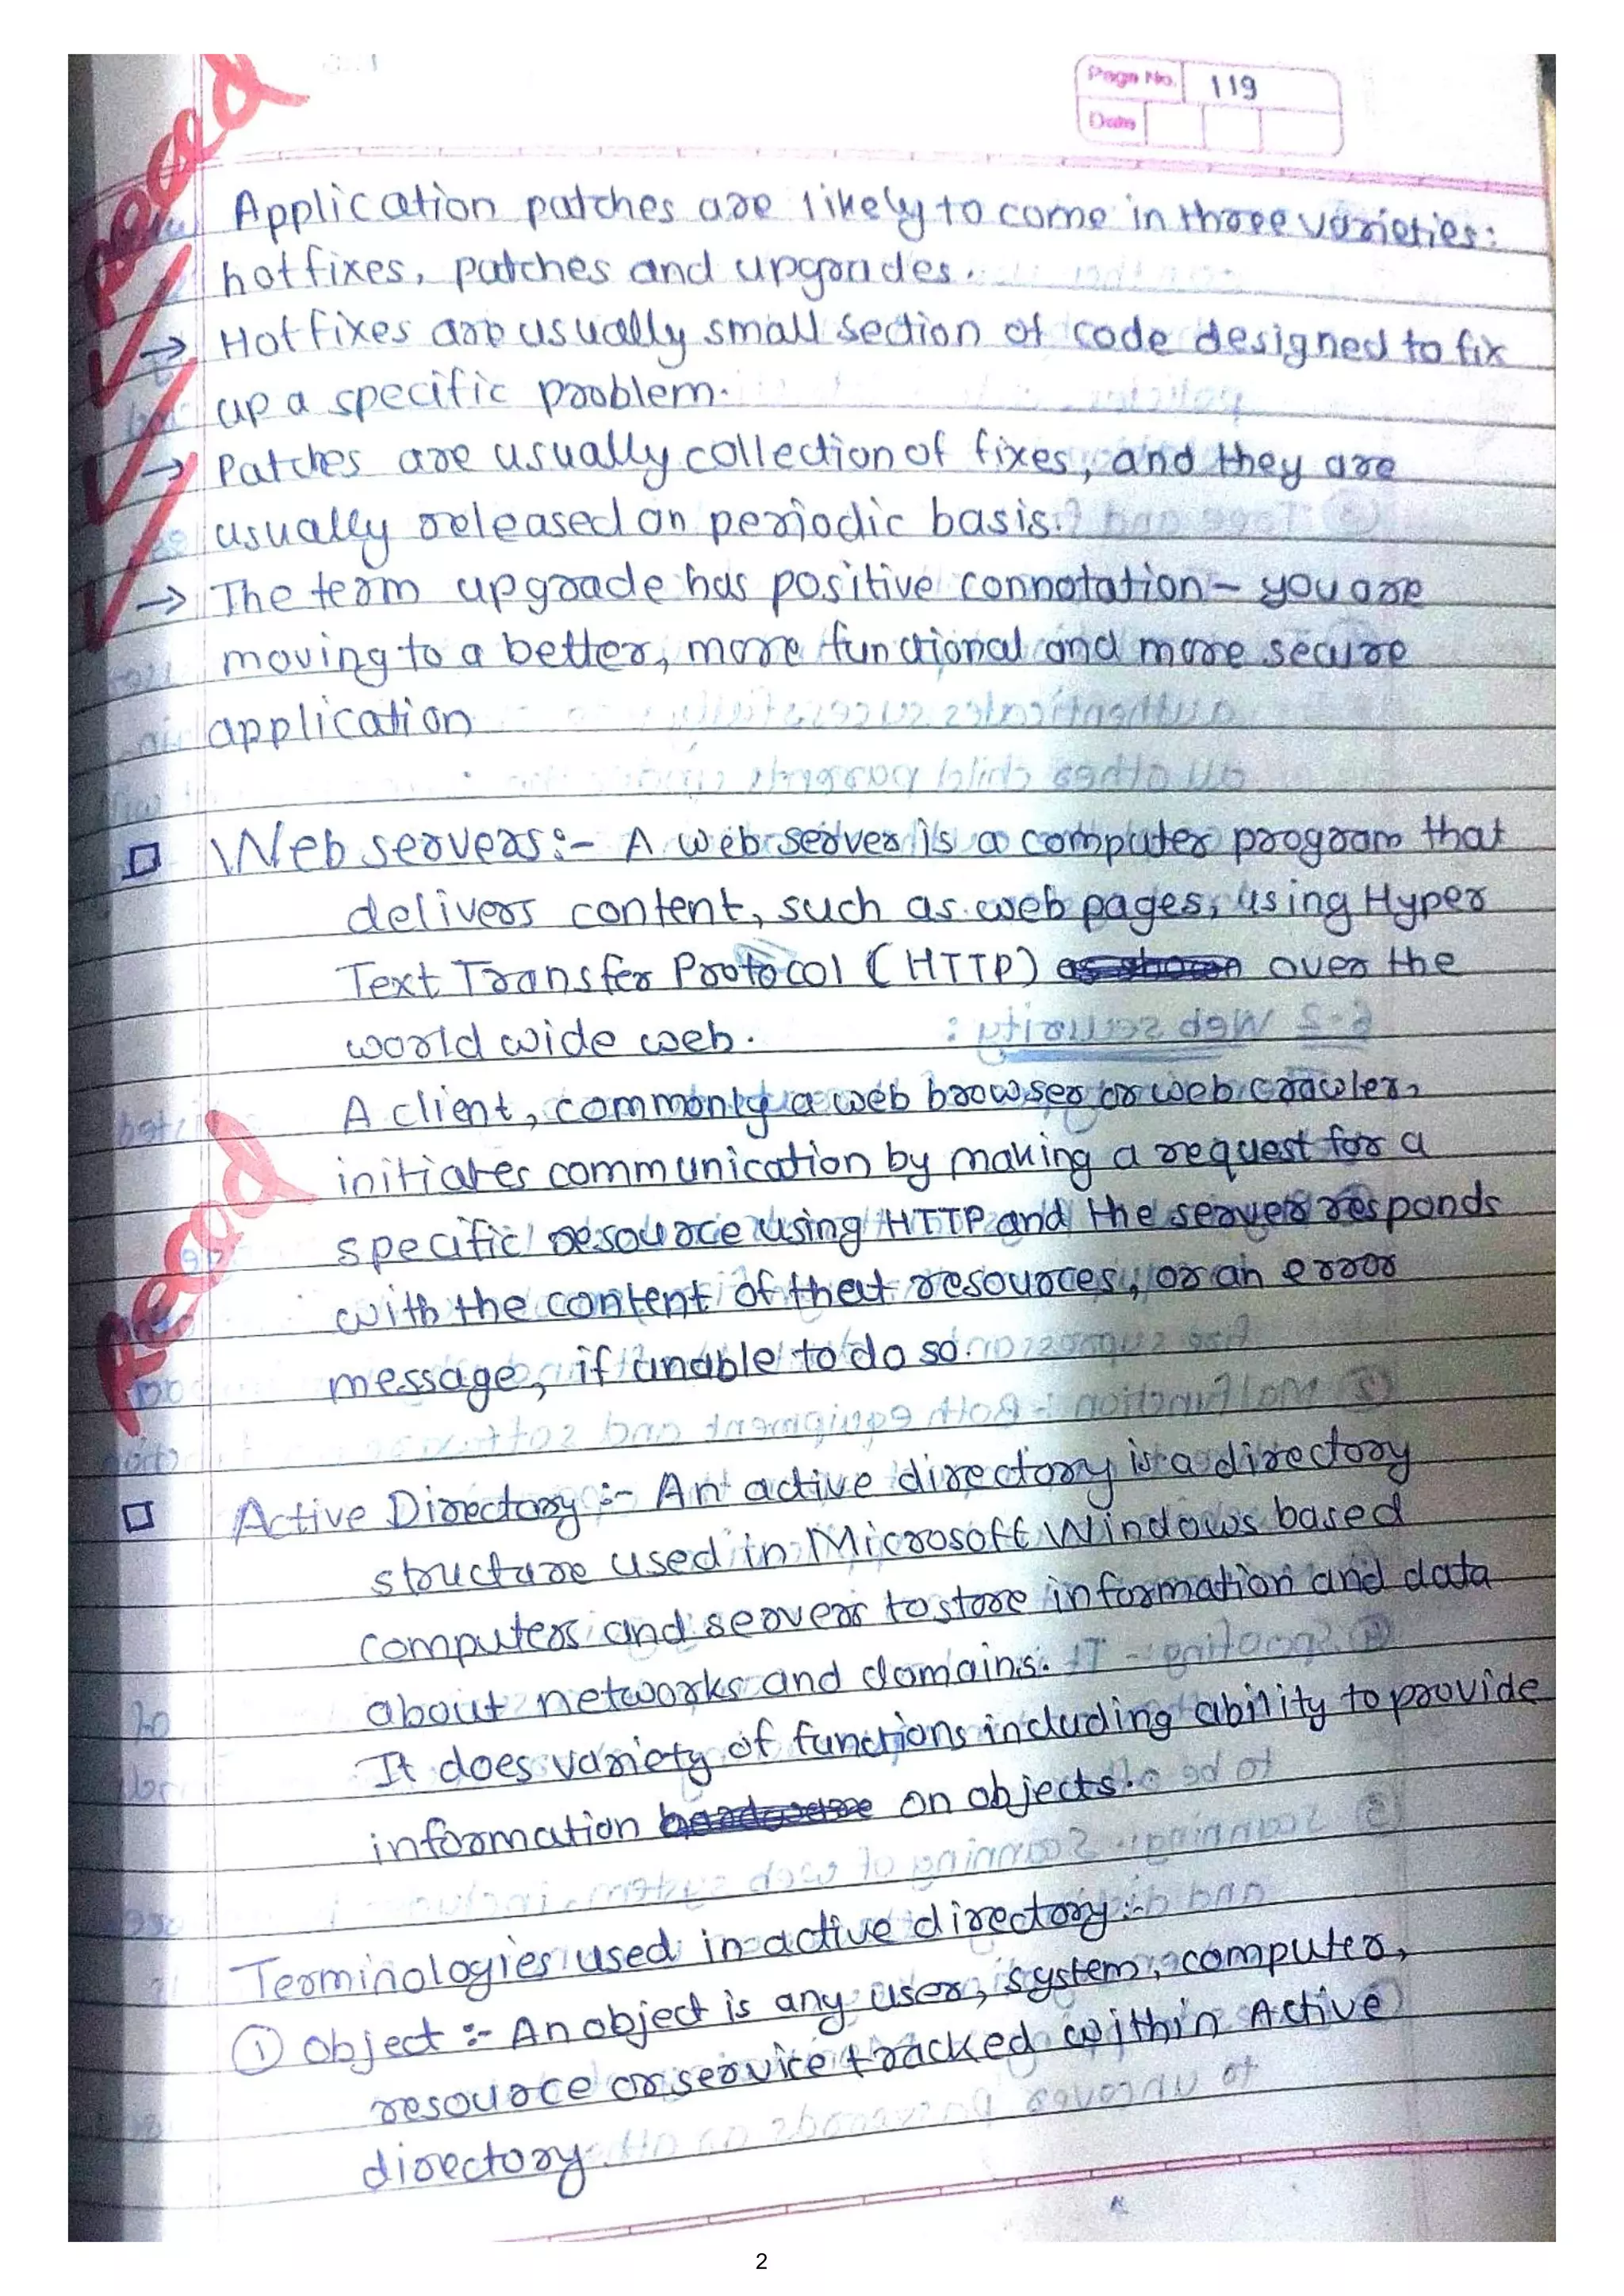 Read
Page No. 119
Date
Application patches are likely to come in three varieties:
hotfixes, patches and upgrades.
→ Hotfixes are usually small section of code designed to fix
up a specific problem.
→ Patches are usually collection of fixes, and they are
usually released on periodic basis.
→ The term upgrade has positive connotation - you are
moving to a better, more functional and more secure
application
Web servers:- A web server is a computer program that
delivers content, such as web pages, using Hyper
Text Transfer Protocol (HTTP) over the
world wide web.
A client, commonly a web browser or web crawler,
initiates communication by making a request for a
Read
specific resource using HTTP and the server responds
with the content of that resources, or an error
message, if unable to do so.
Active Directory :- An active directory is a directory
structure used in Microsoft Windows based
computers and servers to store information and data
about networks and domains.
It does variety of functions including ability to provide
information on objects.
Terminologies used in active directory :-
① Object :- An object is any user, system, computer,
resource or service tracked within Active
directory.
2